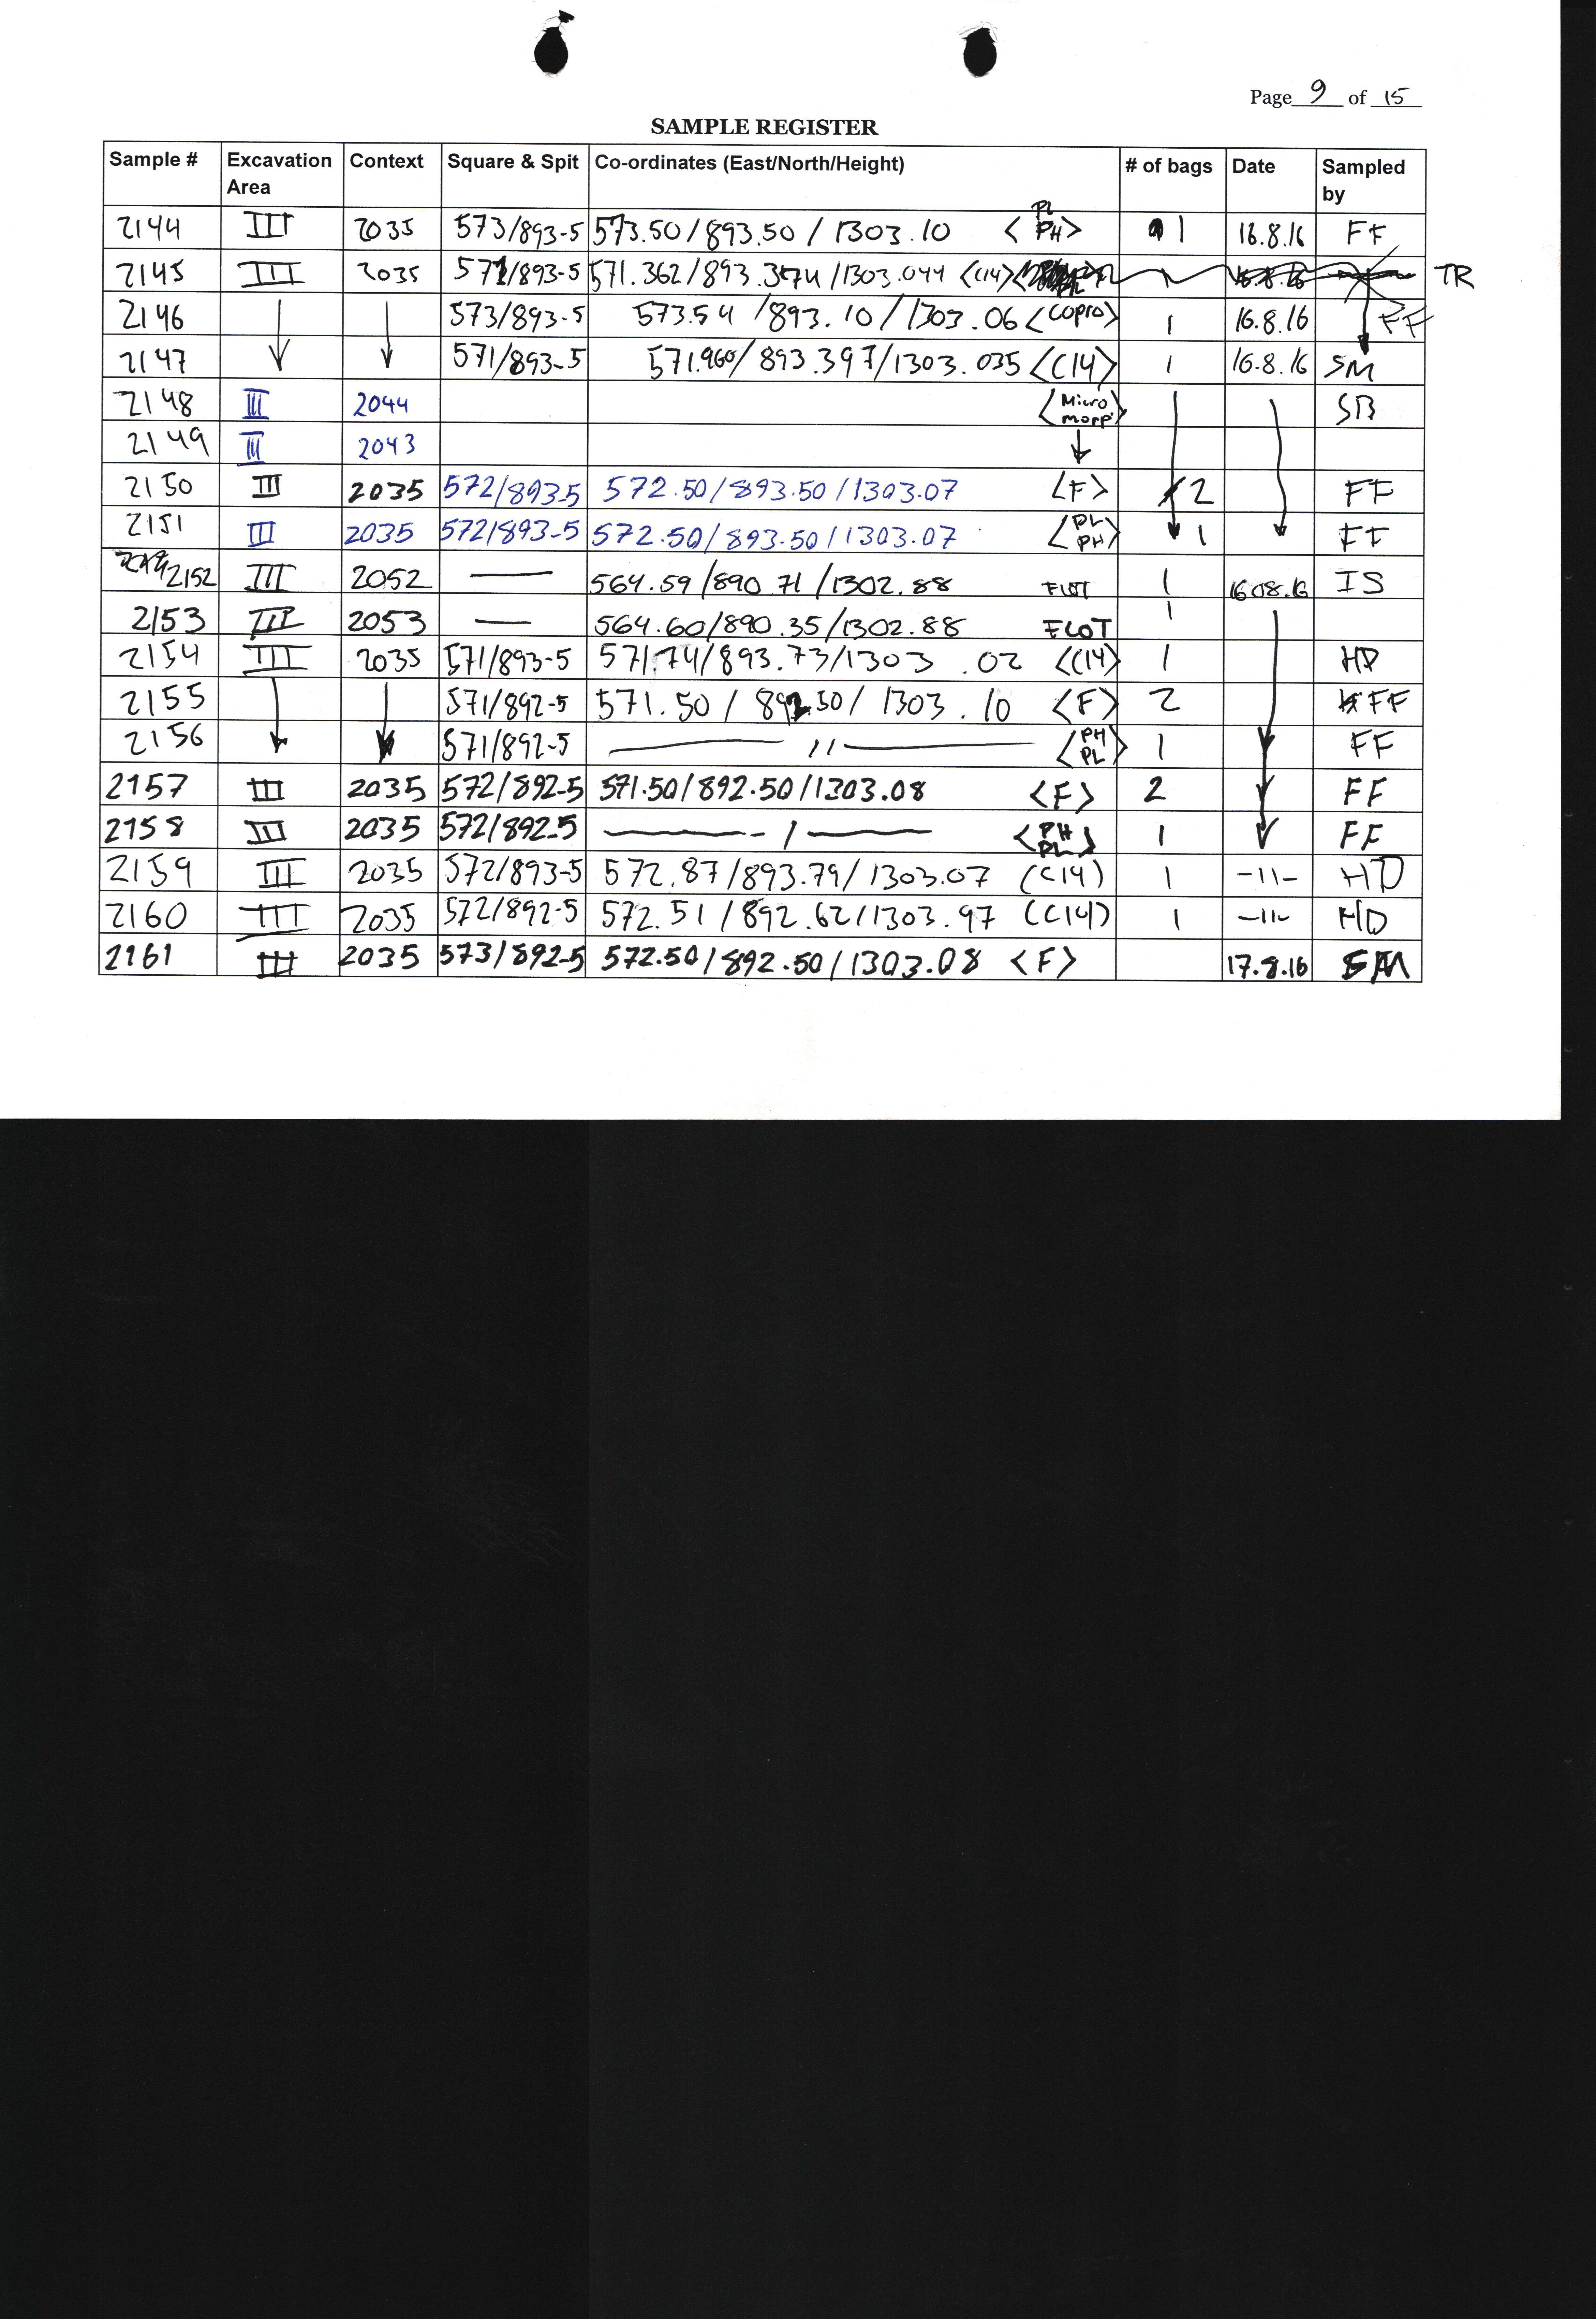 Page 9 of 15
SAMPLE REGISTER
Sample # Excavation Area Context Square & Spit Co-ordinates (East/North/Height) # of bags Date Sampled by
2144 III 2035 573/893-5 573.50/893.50/1303.10 <PL PH> 1 16.8.16 FF
2145 III 2035 571/893-5 571.362/893.374/1303.044 <C14> 1 16.8.16 TR
2146 573/893-5 573.54/893.10/1303.06 <Copro> 1 16.8.16 FF
2147 571/893-5 571.960/893.397/1303.035 <C14> 1 16.8.16 SM
2148 III 2044 <Micro morp> SB
2149 III 2043
2150 III 2035 572/893-5 572.50/893.50/1303.07 <F> 2 FF
2151 III 2035 572/893-5 572.50/893.50/1303.07 <PL PH> 1 FF
2152 III 2052 — 564.59/890.71/1302.88 FLOT 1 16.08.16 IS
2153 III 2053 — 564.60/890.35/1302.88 FLOT 1
2154 III 2035 571/893-5 571.74/893.73/1303.02 <C14> 1 HD
2155 571/892-5 571.50/892.50/1303.10 <F> 2 FF
2156 571/892-5 —〃— <PH PL> 1 FF
2157 III 2035 572/892-5 571.50/892.50/1303.08 <F> 2 FF
2158 III 2035 572/892-5 — / — <PH PL> 1 FF
2159 III 2035 572/893-5 572.87/893.79/1303.07 (C14) 1 -11- HD
2160 III 2035 572/892-5 572.51/892.62/1303.97 (C14) 1 -11- HD
2161 III 2035 573/892-5 572.50/892.50/1303.08 <F> 17.8.16